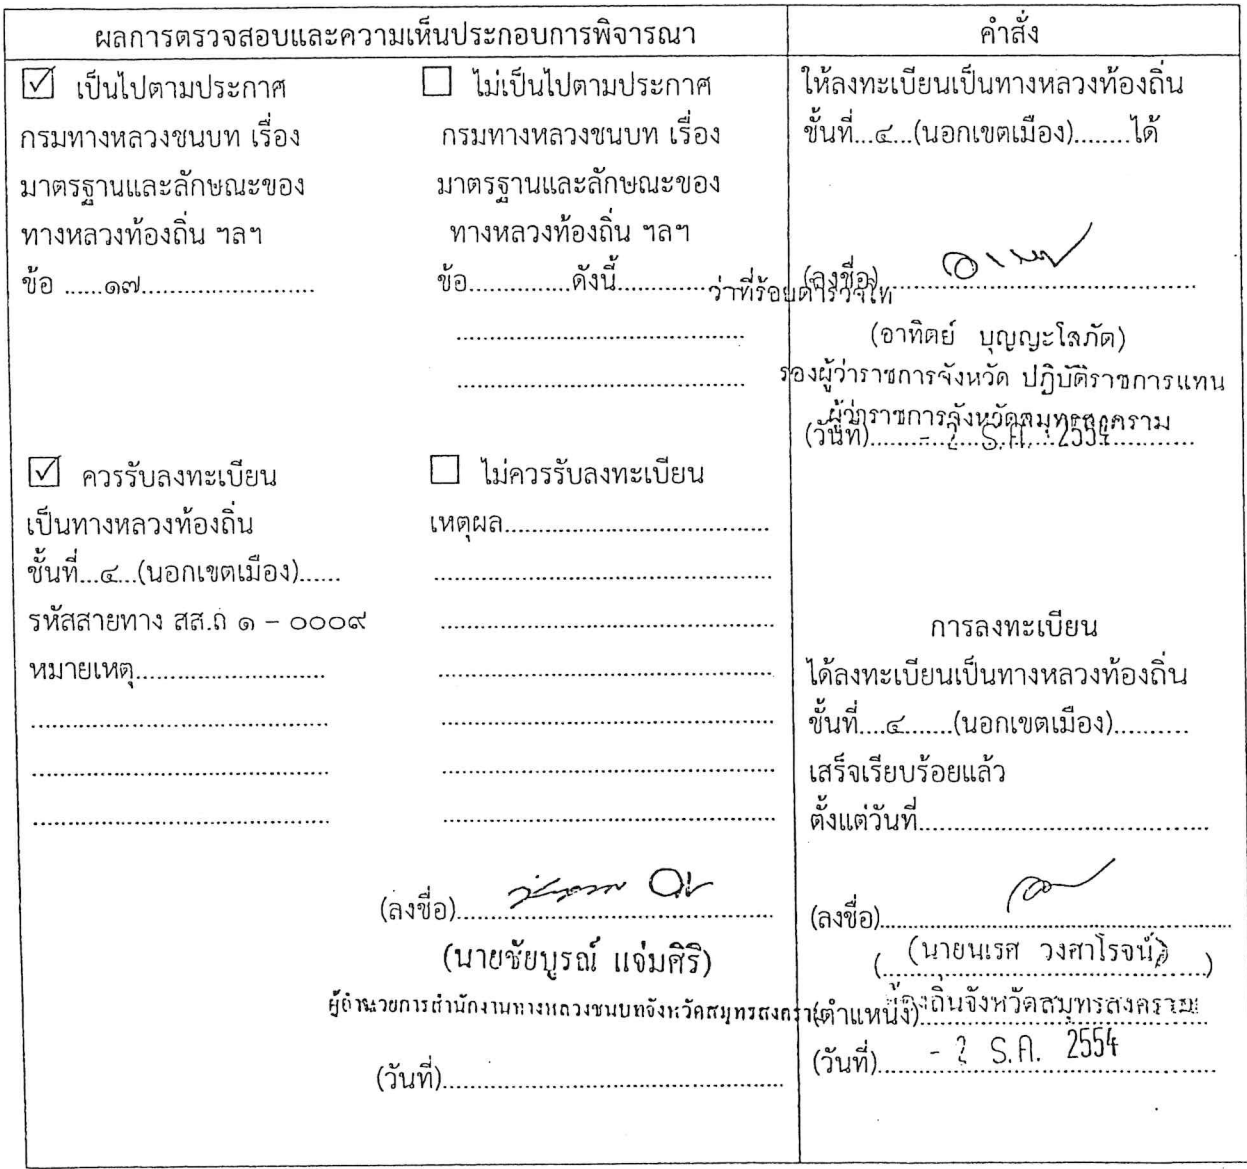 ผลการตรวจสอบและความเห็นประกอบการพิจารณา
☑ เป็นไปตามประกาศ
กรมทางหลวงชนบท เรื่อง
มาตรฐานและลักษณะของ
ทางหลวงท้องถิ่น ฯลฯ
ข้อ ......๑๗.........................
☐ ไม่เป็นไปตามประกาศ
กรมทางหลวงชนบท เรื่อง
มาตรฐานและลักษณะของ
ทางหลวงท้องถิ่น ฯลฯ
ข้อ...............ดังนี้...............
☑ ควรรับลงทะเบียน
เป็นทางหลวงท้องถิ่น
ชั้นที่...๔...(นอกเขตเมือง)......
รหัสสายทาง สส.ถ ๑ – ๐๐๐๙
หมายเหตุ............................
☐ ไม่ควรรับลงทะเบียน
เหตุผล......................................
(ลงชื่อ)..............................................
(นายชัยบูรณ์ แจ่มศิริ)
ผู้อำนวยการสำนักงานทางหลวงชนบทจังหวัดสมุทรสงคราม
(วันที่)..................................................
คำสั่ง
ให้ลงทะเบียนเป็นทางหลวงท้องถิ่น
ชั้นที่...๔...(นอกเขตเมือง)........ได้
ว่าที่ร้อยตำรวจโท
(ลงชื่อ)..............................................
(อาทิตย์ บุญญะโสภัต)
รองผู้ว่าราชการจังหวัด ปฏิบัติราชการแทน
ผู้ว่าราชการจังหวัดสมุทรสงคราม
(วันที่)....... - 2 ธ.ค. 2554............
การลงทะเบียน
ได้ลงทะเบียนเป็นทางหลวงท้องถิ่น
ชั้นที่....๔.......(นอกเขตเมือง)..........
เสร็จเรียบร้อยแล้ว
ตั้งแต่วันที่..........................................
(ลงชื่อ)..................................................
(นายนเรศ วงศาโรจน์)
(ตำแหน่ง) ท้องถิ่นจังหวัดสมุทรสงคราม
(วันที่)....... - 2 ธ.ค. 2554............